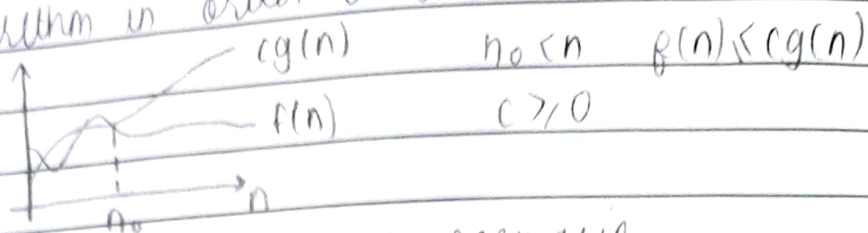 in
cg(n) n₀ < n f(n) ≤ cg(n)
f(n) c ≥ 0
n
n₀